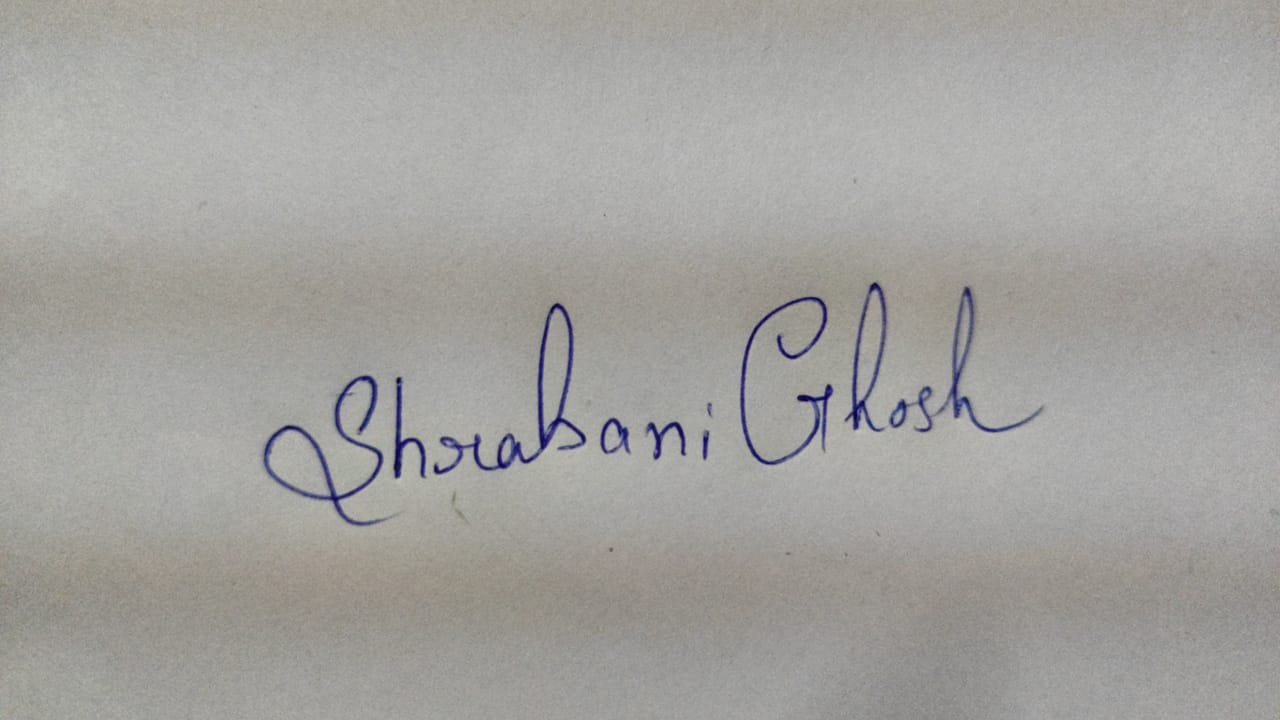 Shrabani Ghosh